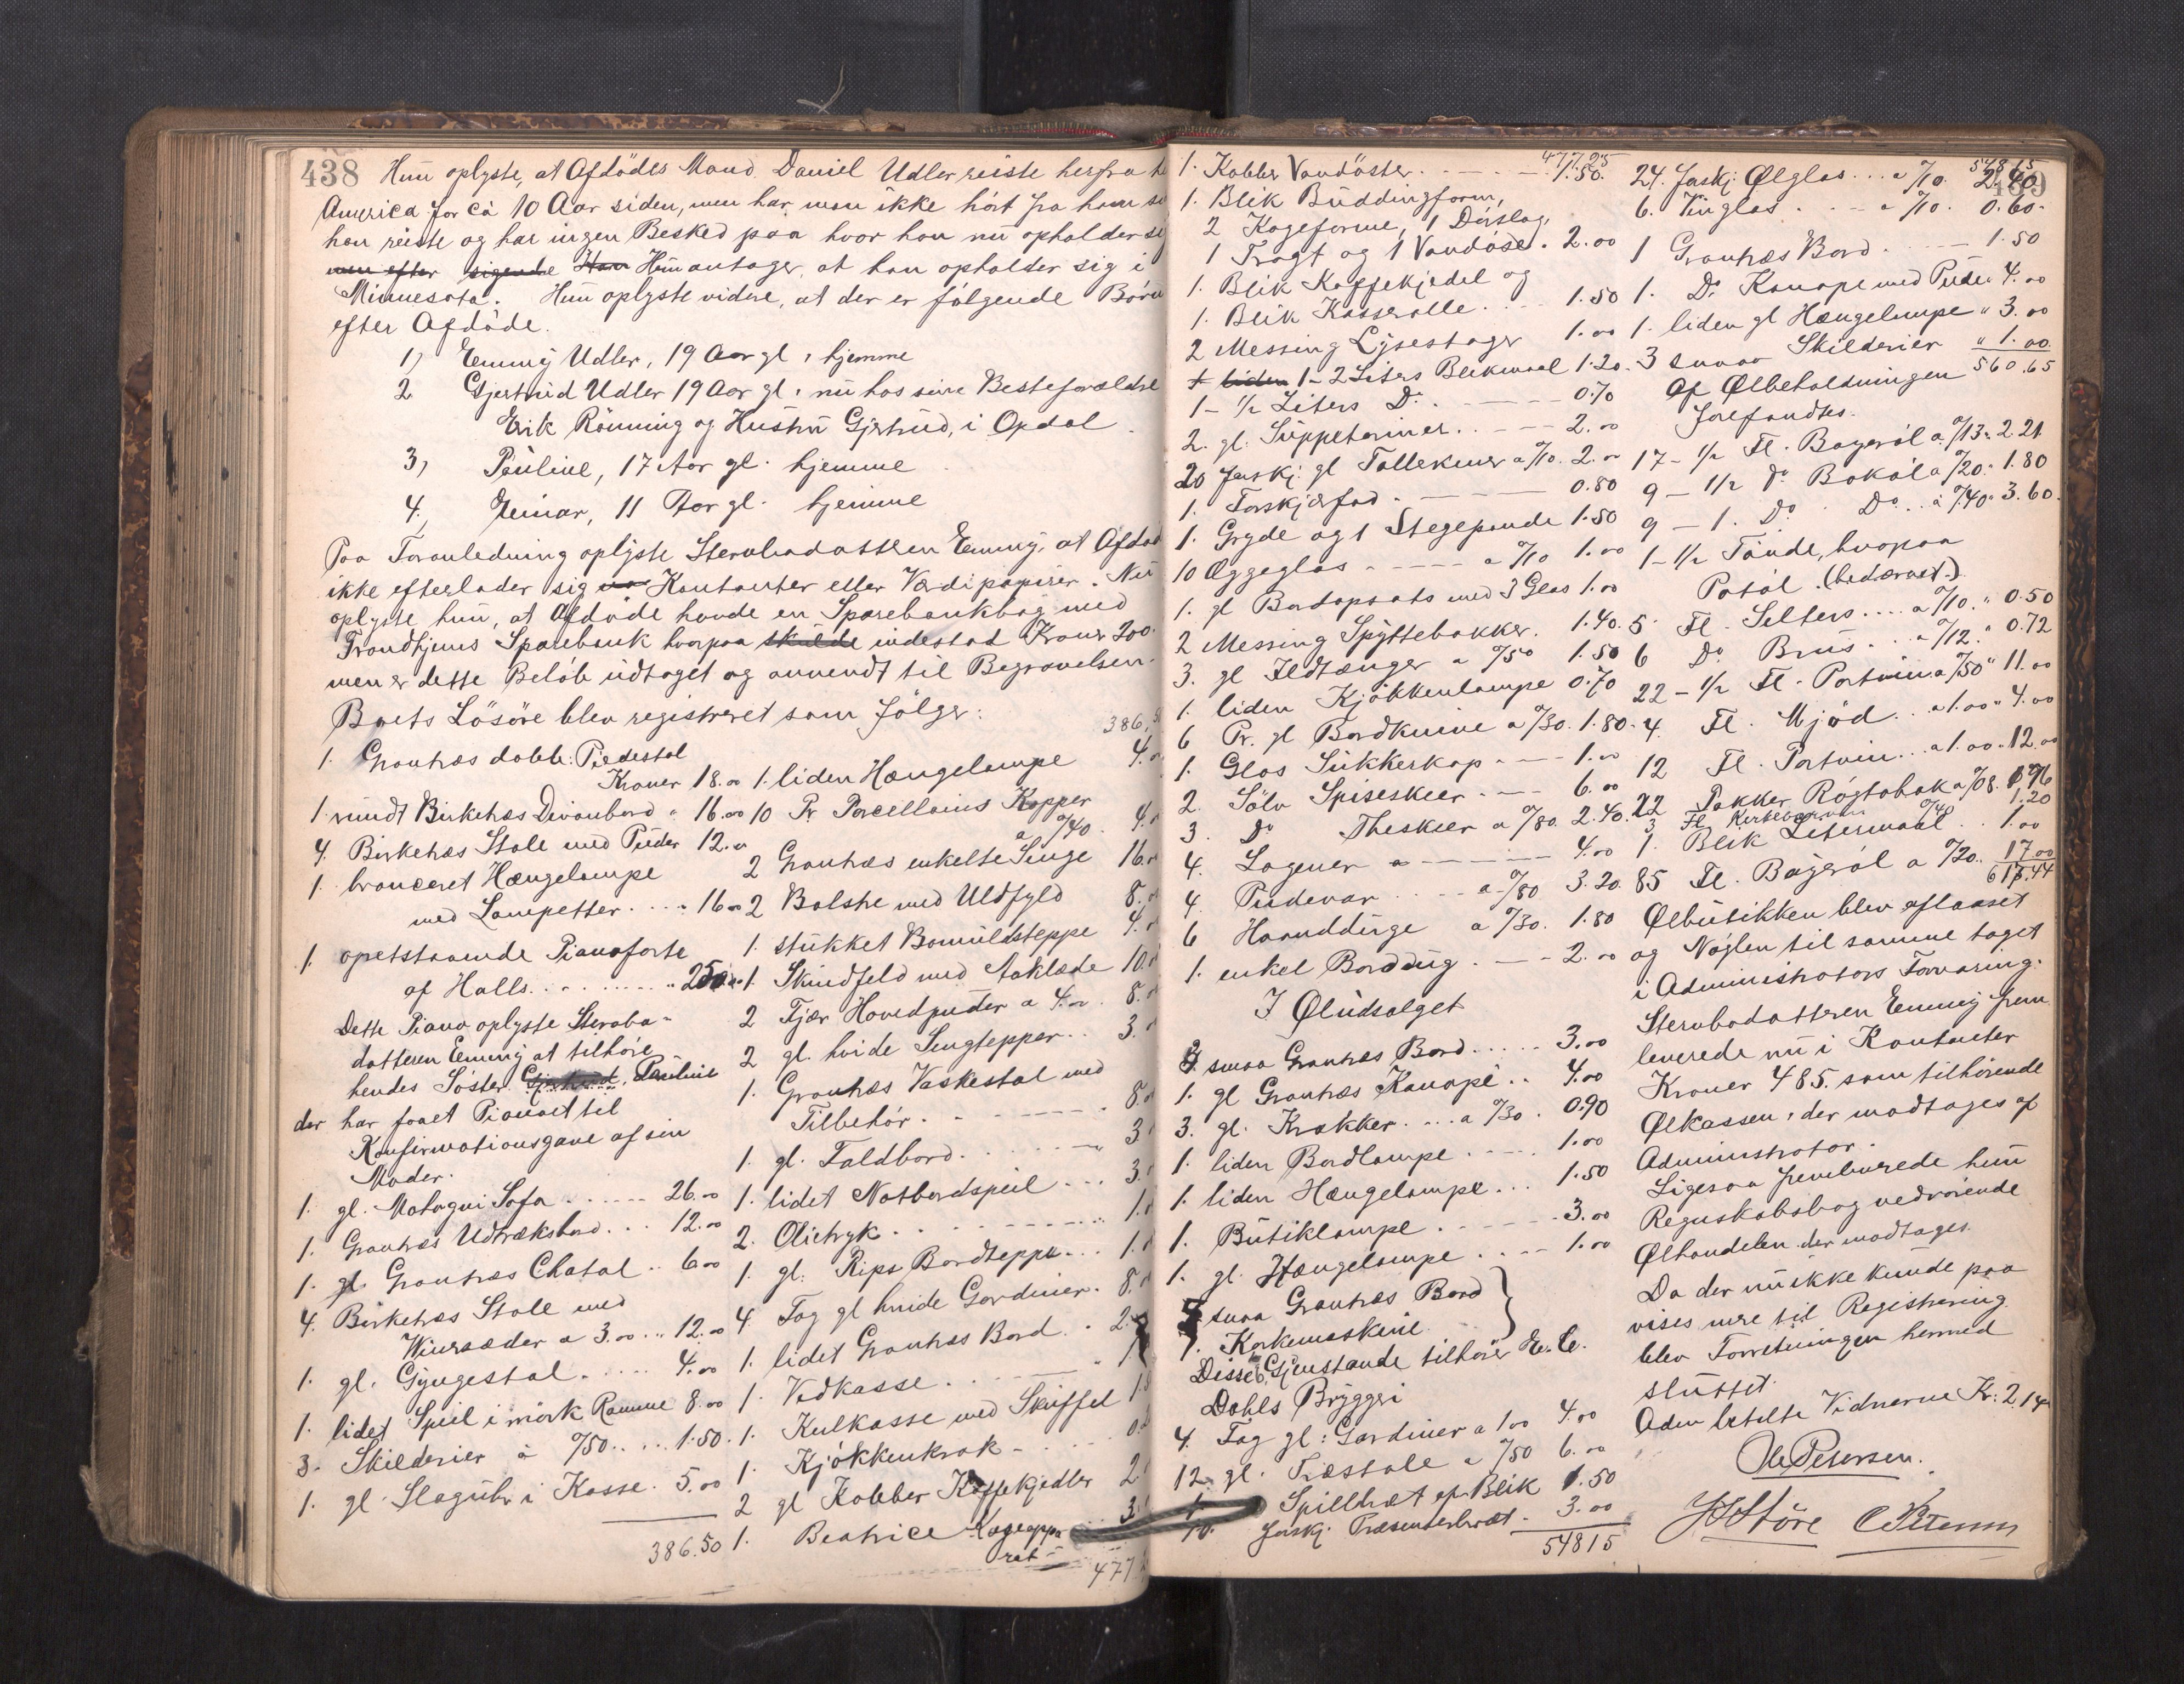 438
Hun oplyste, at Afdödes Mand Daniel Udler reiste herfra
America for ca 10 Aar siden, men har man ikke hört fra ham
han reiste og har ingen Besked paa hvor han nu opholder
men efter sigende Han Hun antager, at han opholder sig i
Minnesota. Hun oplyste videre, at der er fölgende Börn
efter Afdöde.
1) Emmy Udler, 19 Aar gl. hjemme
2 Gjertrud Udler 19 Aar gl. nu hos sine Besteforældre
Erik Rönning og Hustru Gjertrud, i Opdal.
3, Pauline, 17 Aar gl. hjemme
4, Einar, 11 Aar gl. hjemme
Paa Foranledning oplyste Stervbodatteren Emmy, at Afdöde
ikke efterlader sig Kontanter eller Værdipapirer. Nu
oplyste hun, at Afdöde havde en Sparebankbog med
Trondhjems Sparebank hvorpaa skulde indestod Kroner 200
men er dette Beløb udtaget og anvendt til Begravelsen.
Boets Lösöre blev registreret som fölger:
1. Grantræs dobb: Piedestal
Kroner 18.00
1. rundt Birketræs Divanbord " 16.00
4. Birketræs Stole med Puder 12.00
1. bronceret Hængelampe
med Lampetter.... 16.00
1. opretstaaende Pianoforte
af Halls......... 250.00
Dette Piano oplyste Stervbo-
datteren Emmy at tilhöre
hendes Söster Gjertrud, Pauline
der har faaet Pianoet til
Konfirmationsgave af sin
Moder.
1. gl. Mahogni Sofa..... 26.00
1. Grantræs Udtræksbord... 12.00
1. gl. Grantræs Chatol.. 6.00
4. Birketræs Stole med
Wiensæder a 3.00... 12.00
1. gl. Gyngestol..... 4.00
1. lidet Speil i mörk Ramme 8.00
3. Skilderier à 0/50.... 1.50.
1. gl. Slaguhr i Kasse. 5.00
386.50
386.50
1. liden Hængelampe 4.
10 Pr Porcellains Kopper
a 0/40. 4.
2 Grantræs enkelte Senge 16.
2 Bolstre med Uldfyld 8.
1. stukket Bomuldsteppe 4.
1. Skindfeld med Aaklæde 10.
2 Fjær Hovedpuder a 4.00. 8.
2 gl. hvide Sengtepper.. 3.
1. Grantræs Vaskestol med
Tilbehör......... 8.
1. gl. Foldbord....... 3
1. lidet Natbordspeil... 3.
2. Olietryk.......... 1.
1. gl: Rips Bordteppe... 1.
4. Fag gl hvide Gardiner. 8.
1. lidet Grantræs Bord. . 2.
1. Vedkasse.......
1. Kulkasse med Skuffel 1
1. Kjökkenkrak......
2 gl Kobber Kaffekjedler 2
1. Beatrice Kogeappa 3
rat
477
477.25
1. Kobber Vandöster..... 1.50.
1. Blik Buddingform,
2 Kageforme, 1 Dörslag,
1 Tragt og 1 Vandöse. 2.00
1. Blik Kaffekjedel og
1. Blik Kasserolle.... 1.50
2 Messing Lysestager 1.00
1 liden 1-2 Liters Blikmaal 1.20.
1- 1/2 Liters Do...... 0.70
2. gl. Suppeteriner..... 2.00
20 forskj: gl Tallerkener a 0/10. 2.00
1. Torskjefad...... 0.80
1. Gryde og 1 Stegepande 1.50
10 Æggeglas..... a 0/10 1.00
1. gl Bordopsats med 3 Glas 1.00
2 Messing Spyttebakker. 1.40.
3. gl Ildtænger a 0/50 1.50
1. liden Kjökkenlampe 0.70
6 Pr. gl. Bordknive a 0/30. 1.80.
1. Glas Sukkerkop.... 1.00
2. Sölv Spiseskeer.... 6.00
3. Do Theskeer a 0/80. 2.40.
4. Lagener a ...... 4.00
4. Pudevar ... a 0/80 3.20.
6 Haandduge a 0/30. 1.80
1. enkel Borddug.... 2.00
I Øludsalget
2. smaa Grantræs Bord..... 3.00
1. gl Grantræs Kanapé.. 4.00
3. gl. Krakker.... a 0/30. 0.90
1. liden Bordlampe..... 1.00
1. liden Hængelampe... 1.50
1. Butiklampe....... 3.00
1. gl. Hængelampe.... 1.00
smaa Grantræs Bord
1. Korkemaskine
Disse Gjenstande tilhörer E. C.
Dahls Bryggeri
4. Fag gl: Gardiner a 1.00 4.00
12 gl. Træstole a 0/50 6.00
1. Spillbræt af Blik 1.50
10. forskj. Præsenterbræt. 3.00
548 15
548.15
439
24. forskj. Ølglas... a 0/10. 2.40
6. Vinglas.... a 0/10. 0.60.
1 Grantræs Bord...... 1.50
1. Do Kanape med Puder 4.00
1. liden gl Hængelampe " 3.00
3 smaa Skilderier " 1.00.
560.65
Af Ølbeholdningen
forefandtes.
17- 1/2 Fl. Bayeröl a. 0/13. 2.21
9- 1/2 Do Boköl a 0/20. 1.80
9-1. Do. Do.. a 0/40. 3.60.
1- 1/2 Tönde, hvorpaa
Potöl. (bedærvet.)
5. Fl. Selters.... a 0/10. " 0.50
6 Do Brus... a 0/12. " 0.72
22- 1/2 Fl. Portvin a 0/50 " 11.00
4. Fl. Mjöd.. a 1.00 " 4.00
12 Fl. Portvin... a 1.00. 12.00
22 Pakker Rögtobak a 0/08. 1.76
3 Fl Kirkebærvin 0/40 1.20
1. Blik Litermaal.. 1.00
85 Fl. Bayeröl a 0/20.. 17.00
617.44
Ølbutikken blev aflaaset
og Nöglen til samme taget
i Administrators Forvaring.
Stervbodatteren Emmy frem
leverede nu i Kontanter
Kroner 485. som tilhörende
Ølkassen, der modtages af
Administrator.
Ligesaa fremleverede hun
Regnskabsbog vedrörende
Ølhandelen der modtages.
Da der nu ikke kunde paa
vises mere til Registrering
blev Forretningen hermed
sluttet.
Aden betalte Vidnerne Kr: 2,14
Ole Petersen.
Störe C Petersen